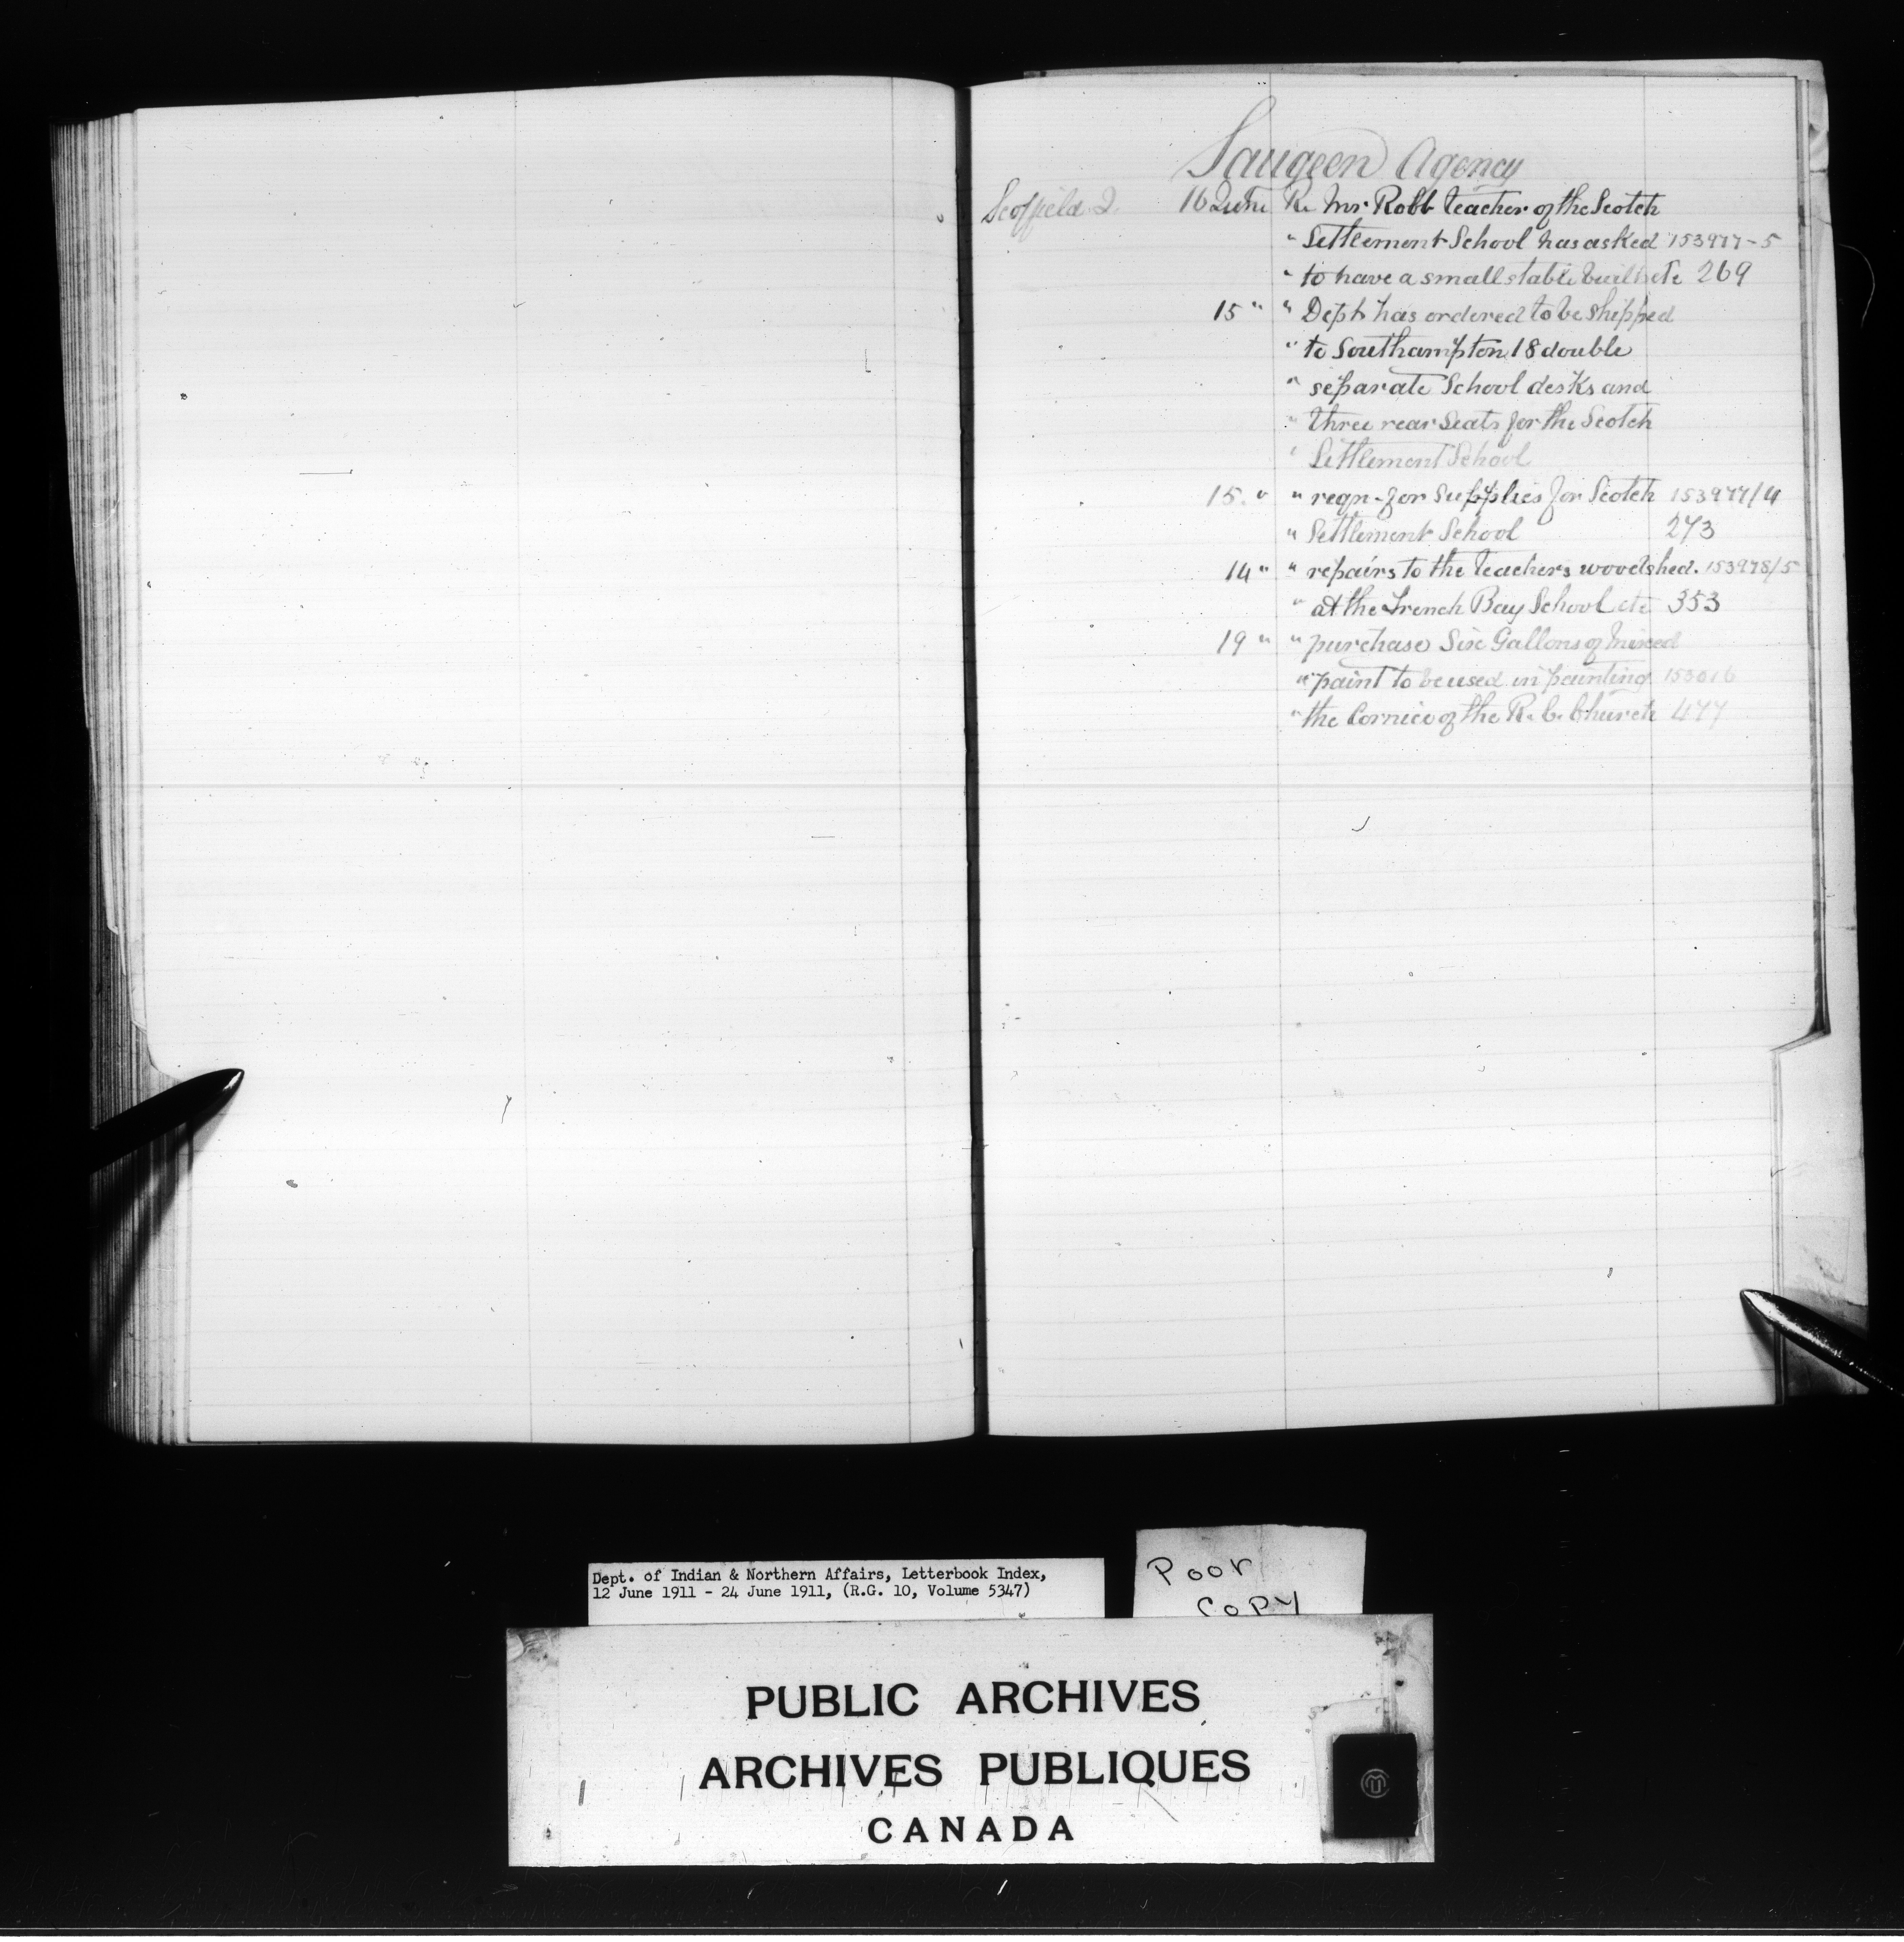 Saugeen Agency
Scoffield J. 16 June Re Mr Robb teacher of the Scotch
" Settlement School has asked 153977-5
" to have a small stable built etc 269
15 " " Dept has ordered to be shipped
" to Southampton 18 double
" separate School desks and
" three rear Seats for the Scotch
" Settlement School
15. " " reqn. for Supplies for Scotch 153977/4
" Settlement School 273
14 " " repairs to the teachers woodshed. 153978/5
" at the French Bay School etc 353
19 " " purchase Six Gallons of mixed
" paint to be used in painting 153016
" the Cornice of the R. C. Church 477
Dept. of Indian & Northern Affairs, Letterbook Index,
12 June 1911 - 24 June 1911, (R.G. 10, Volume 5347)
Poor
Copy
PUBLIC ARCHIVES
ARCHIVES PUBLIQUES
CANADA